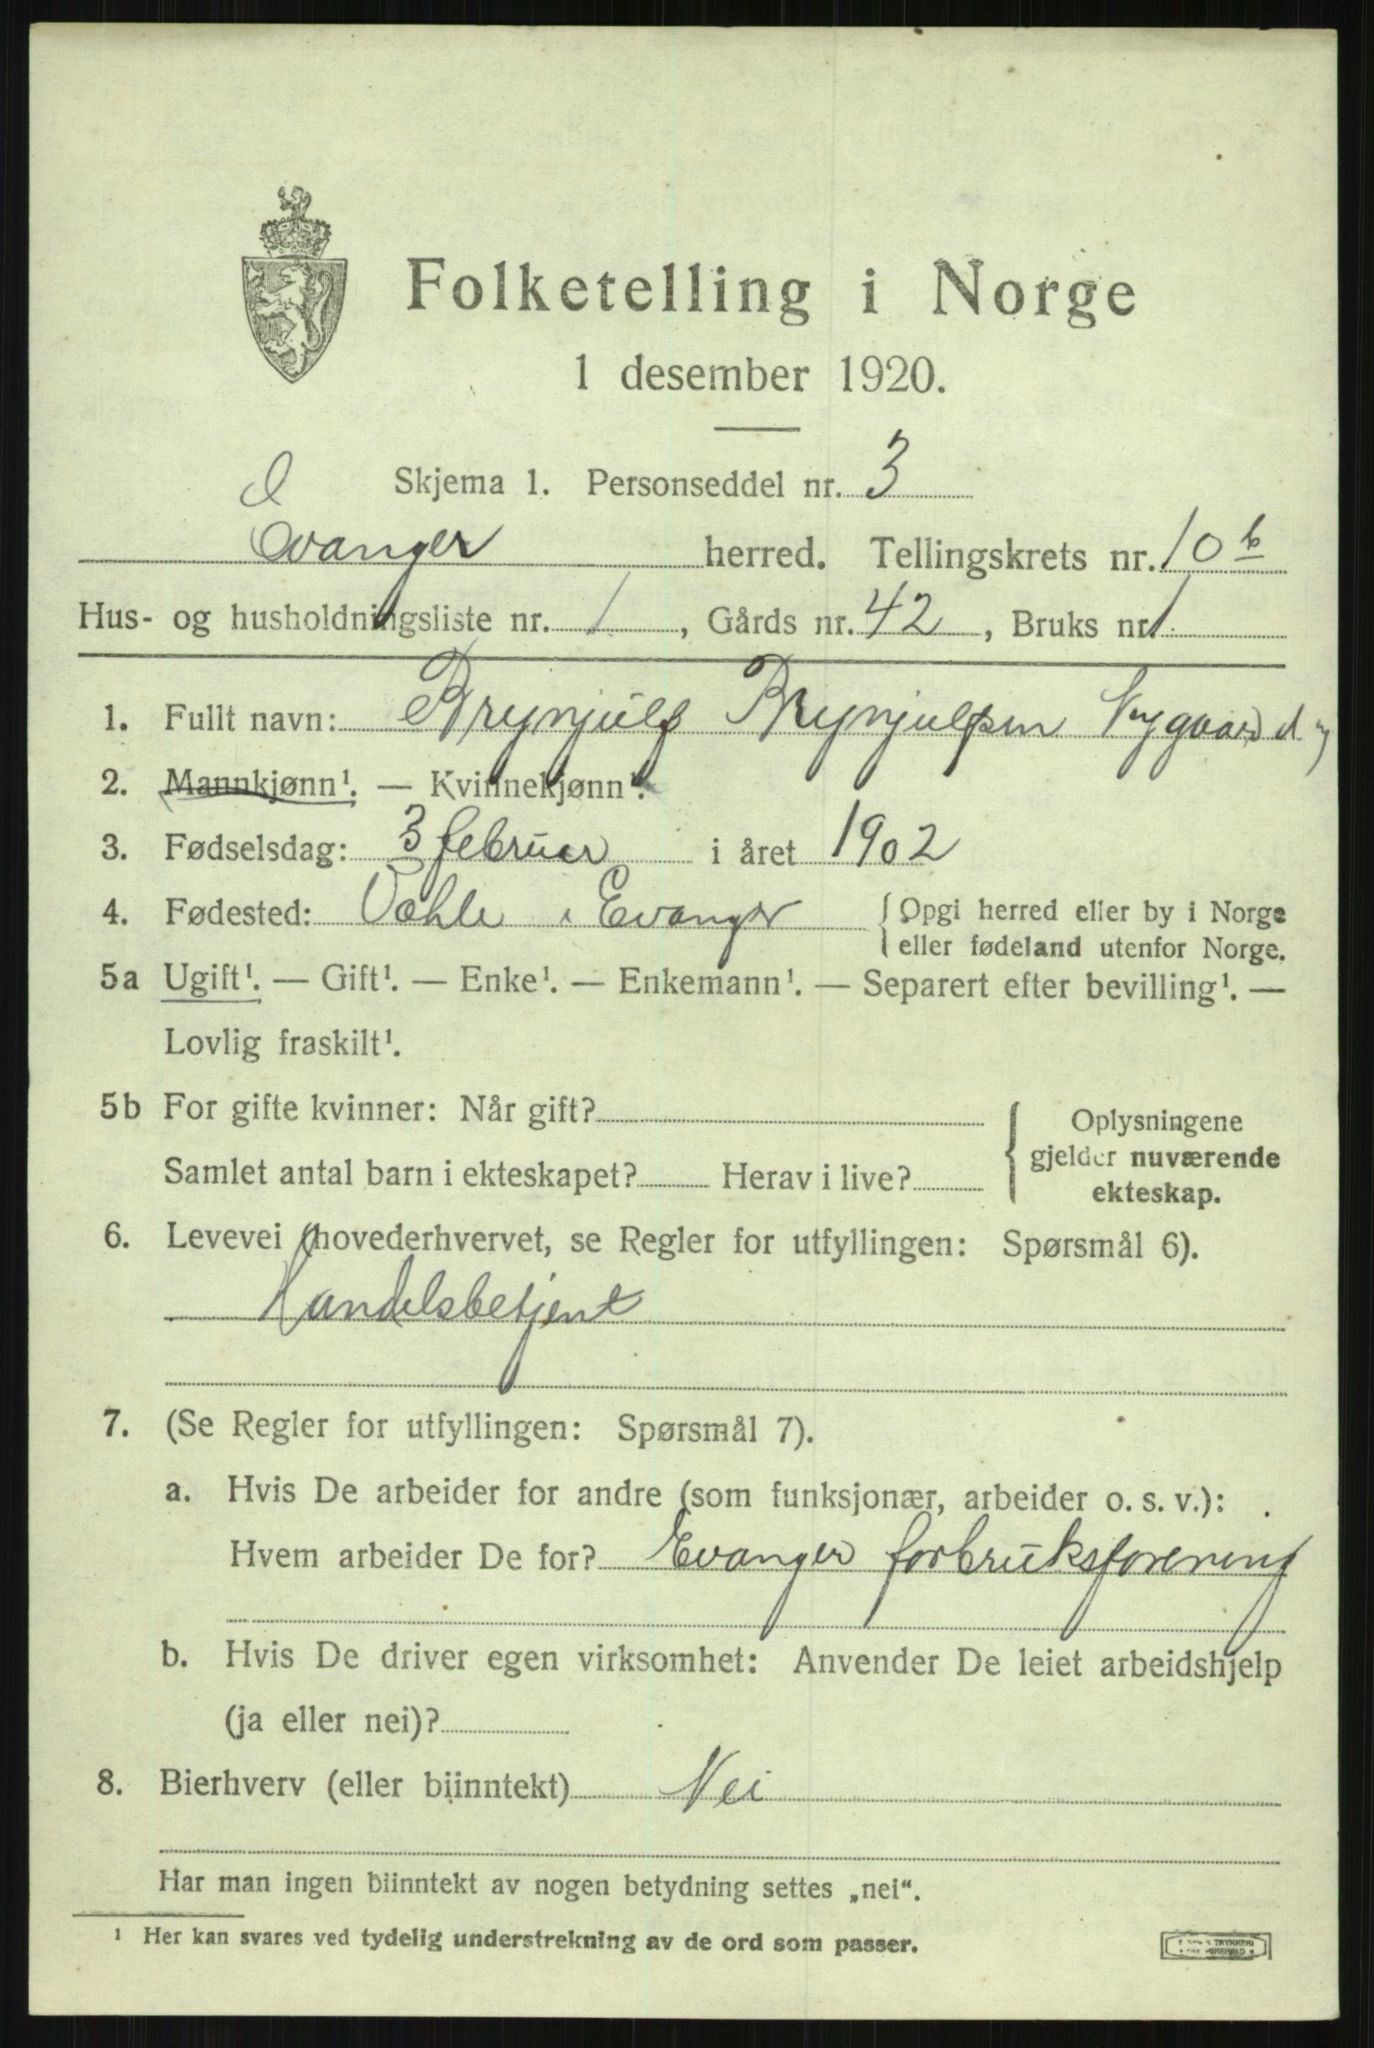 Folketelling i Norge
1 desember 1920.
Skjema 1. Personseddel nr. 3
Evanger herred. Tellingskrets nr. 10 b
Hus- og husholdningsliste nr. 1, Gårds nr. 42, Bruks nr. 1
1. Fullt navn: Brynjulf Brynjulfsen Nygaard
2. Mannkjønn¹. — Kvinnekjønn¹.
3. Fødselsdag: 3 februar i året 1902
4. Fødested: i Evanger {Opgi herred eller by i Norge
eller fødeland utenfor Norge.
5a Ugift¹. — Gift¹. — Enke¹. — Enkemann¹. — Separert efter bevilling¹. —
Lovlig fraskilt¹.
5b For gifte kvinner: Når gift?
Samlet antal barn i ekteskapet? Herav i live?
Oplysningene
gjelder nuværende
ekteskap.
6. Levevei (hovederhvervet, se Regler for utfyllingen: Spørsmål 6).
Handelsbetjent
7. (Se Regler for utfyllingen: Spørsmål 7).
a. Hvis De arbeider for andre (som funksjonær, arbeider o. s. v.):
Hvem arbeider De for? Evanger forbruksforening
b. Hvis De driver egen virksomhet: Anvender De leiet arbeidshjelp
(ja eller nei)?
8. Bierhverv (eller biinntekt) Nei
Har man ingen biinntekt av nogen betydning settes „nei“.
¹ Her kan svares ved tydelig understrekning av de ord som passer.